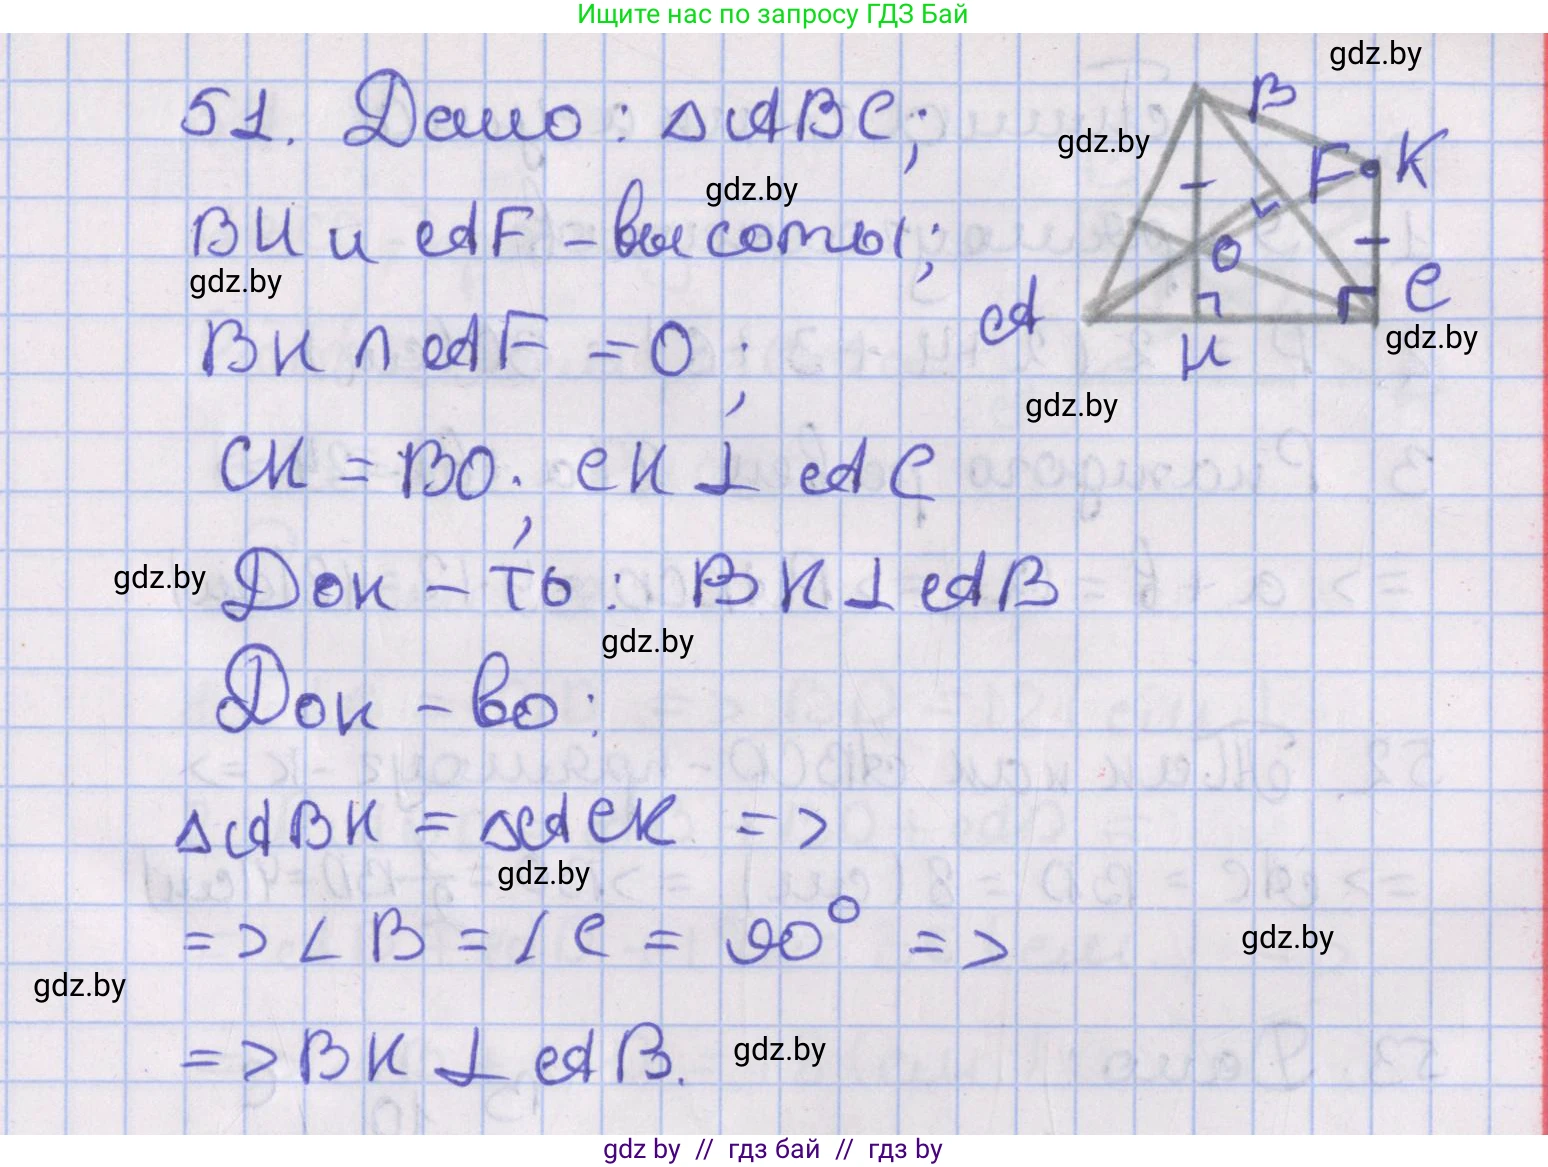 Ищите нас по запросу ГДЗ Бай
gdz.by
51. Дано: △ABC;
B
K
F
gdz.by
gdz.by
BH и AF – высоты;
O
gdz.by
C
A
BH ∩ AF = O;
H
gdz.by
gdz.by
CK = BO; CK ⊥ AC
gdz.by
Док – ть: BK ⊥ AB
gdz.by
Док – во:
△ABK = △ACK =>
gdz.by
=> ∠B = ∠C = 90° =>
gdz.by
gdz.by
=> BK ⊥ AB.
gdz.by
gdz by // гдз бай // гдз by